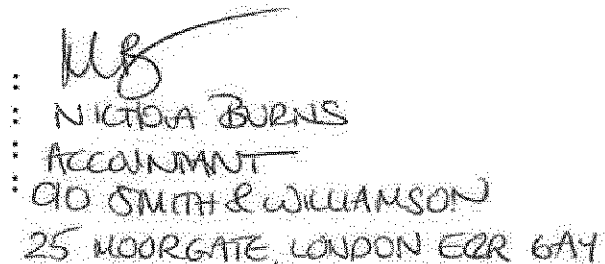 NICHOLA BURNS
ACCOUNTANT
C/O SMITH & WILLIAMSON
25 MOORGATE LONDON EC2R 6AY